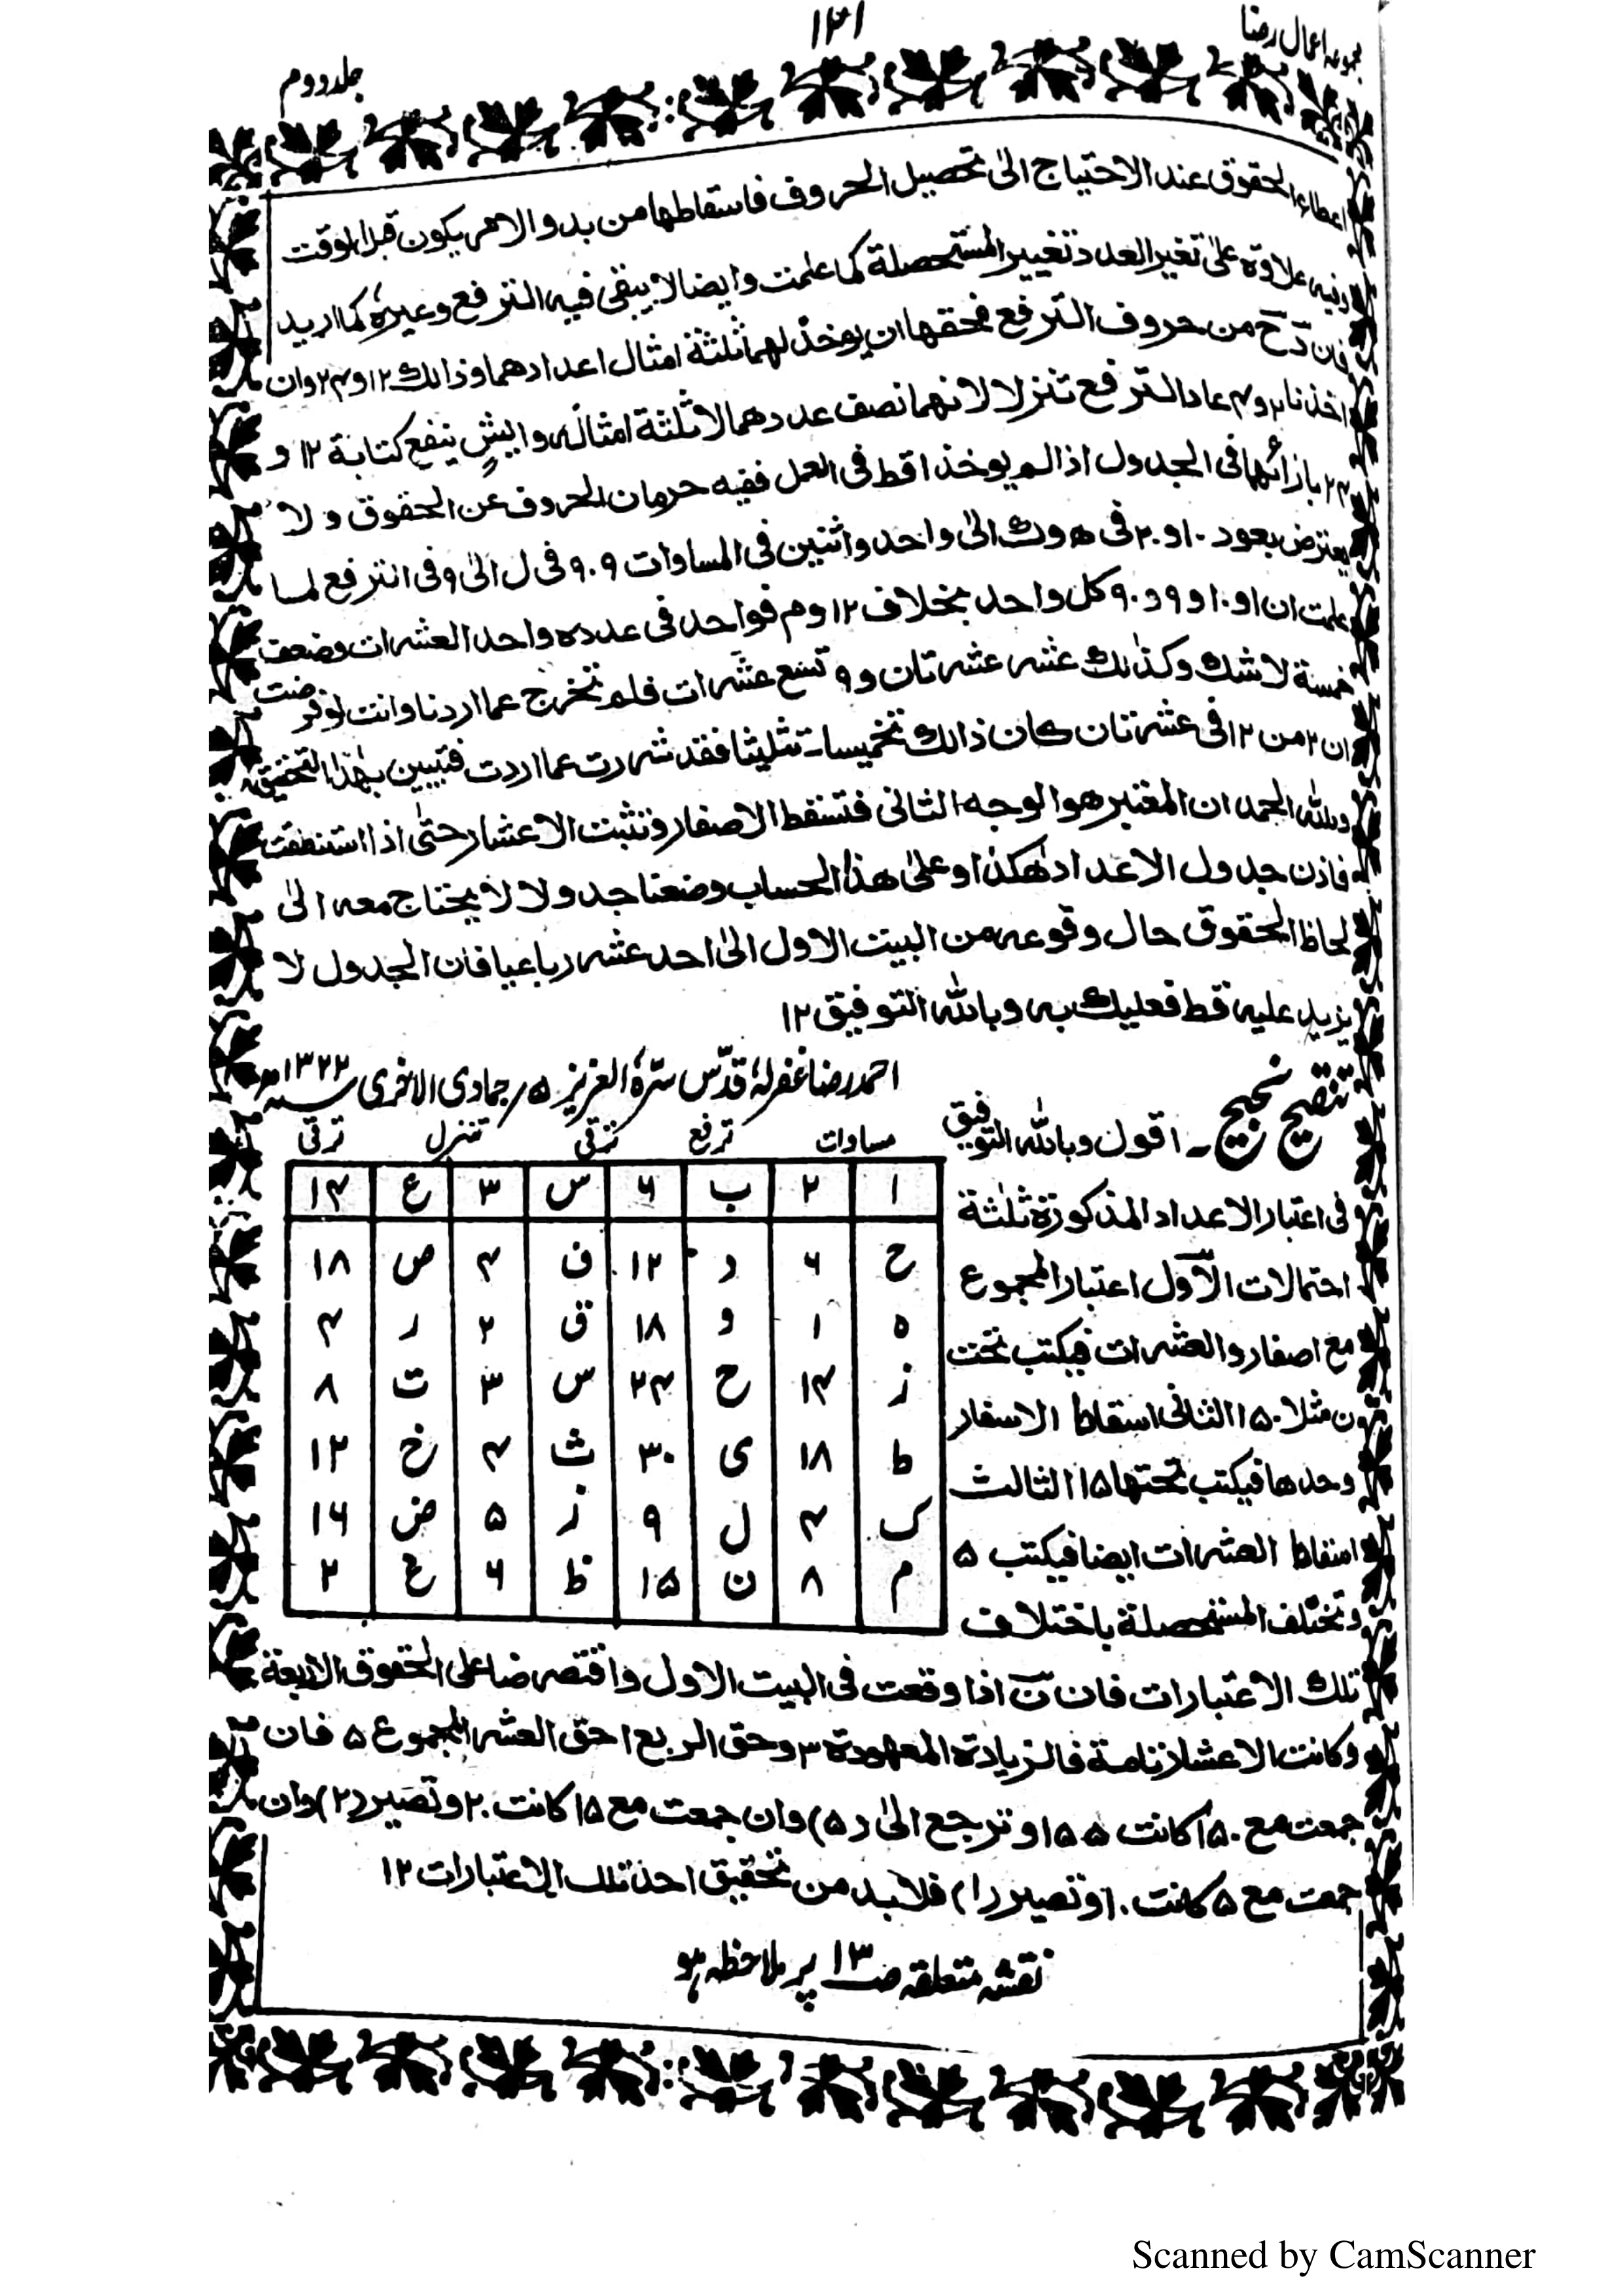 مجموعہ اعمال رضا
۱۲۱
جلد دوم
اعطاء الحقوق عند الاحتیاج الیٰ تحصیل الحروف فاسقاطها من بدو الامر یکون قبل الوقت
وفیه علاوة علیٰ تغیر العدد تغییر المستحصلة کما علمت وایضا لا یبقی فیه الترفع وغیرہٗ کما ارید
فان دَ حَ من حروف الترفع فحقها ان یوخذ لهما ثلثة امثال اعدادهما وذالك ۱۲ و ۲۴ وان
اخذنا ۲ و ۴ عاد الترفع تنزلا لانهما نصف عددهما لا ثلثة امثاله ولیش ینفع کتابة ۱۲ و
۲۴ بازائهما فی الجدول اذا لم یوخذا قط فی العمل ففیه حرمان الحروف عن الحقوق ولا
یعترض بعود ۱۰ و ۲۰ فی ه وك الیٰ واحد واثنین فی المساوات ۹۰۹ فی ل الیٰ ۹ وفی الترفع لما
علمت ان ا و ۱۰ و ۹ و ۹۰ کل واحد بخلاف ۱۲ و م فواحد فی عدده واحد العشرات وضعف
خمسة لا شك وکذٰلك عشر عشرتان و ۹ تسع عشرات فلم نخرج عما اردنا وانت لو فرضت
ان ۲ من ۱۲ فی عشرتان کان ذالك تخمیسا تثلیثا فقد شردت عما اردت فتبین بهٰذا التحقیق
وللّٰه الحمد ان المعتبر هو الوجه الثانی فتسقط الاصفار وتثبت الاعشار حتیٰ اذا استنطقت
فاذن جدول الاعداد هٰکذا وعلیٰ هذا الحساب وضعنا جدولا لا یحتاج معه الیٰ
لحاظ الحقوق حال وقوعه من البیت الاول الیٰ احد عشر رباعیا فان الجدول لا
یزید علیه قط فعلیك به وباللّٰه التوفیق ۱۲
احمد رضا غفرلہٗ قدّس سرّہٗ العزیز ۵/ جمادی الاخریٰ سنہ ۱۳۲۲ھ
تنقیح نجیح ۔ اقول وباللّٰه التوفیق
فی اعتبار الاعداد المذکورة ثلٰثة
احتمالات الاّول اعتبار المجموع
مع اصفار والعشرات فیکتب تحت
ن مثلا ۱۵۰ الثانی اسقاط الاسفار
وحدها فیکتب تحتها ۱۵ الثالث
اسقاط العشرات ایضا فیکتب ۵
وتختلف المستحصلة باختلاف
مساوات ترفع ترقی تنزل ترقی
ا ۲ ب ۶ س ۳ ع ۱۴
ح ۶ د ۱۲ ف ۴ ص ۱۸
ه ۱ و ۱۸ ق ۲ ر ۴
ز ۱۴ ح ۲۴ س ۳ ت ۸
ط ۱۸ ی ۳۰ ث ۴ خ ۱۲
ک ۴ ل ۹ ز ۵ ض ۱۶
م ۸ ن ۱۵ ظ ۶ غ ۲
تلك الاعتبارات فان نَ اذا وقعت فی البیت الاول واقتصرنا علی الحقوق الاربعة
وکانت الاعشار تامة فالزیادة المعهودة ۳ وحق الربع ا حق العشر المجموع ۵ فان
جمعت مع ۱۵۰ کانت ۱۵۵ و ترجع الیٰ (۵) وان جمعت مع ۱۵ کانت ۲۰ وتصیر (۲) وان
جمعت مع ۵ کانت ۱۰ وتصیر (ا) فلا بد من تحقیق احد تلك الاعتبارات ۱۲
نقشہ متعلقہ صـ ۱۳ پر ملاحظہ ہو
Scanned by CamScanner